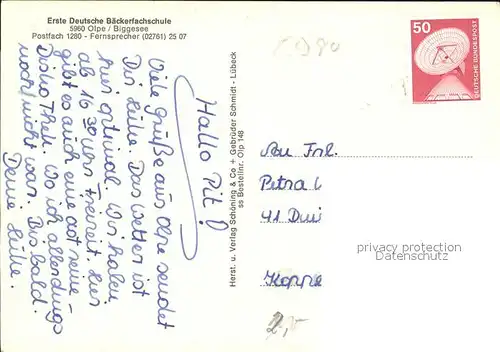 Erste Deutsche Bäckerfachschule
5960 Olpe / Biggesee
Postfach 1280 - Fernsprecher (02761) 25 07
Hallo Pit!
Viele Grüße aus Olpe sendet
Dir Heike. Das Wetter ist
hier optimal. Wir haben
ab 16 30 Uhr Freizeit. Hier
gibt es auch eine
Diskothek. Wo ich allerdings
noch nicht war. Bis bald.
Deine Heike.
Herst. u. Verlag Schöning & Co + Gebrüder Schmidt - Lübeck
ss Bestellnr. Olp 148
50
DEUTSCHE BUNDESPOST
Frl.
Petra
41 Dui
privacy protection
Datenschutz
2,-